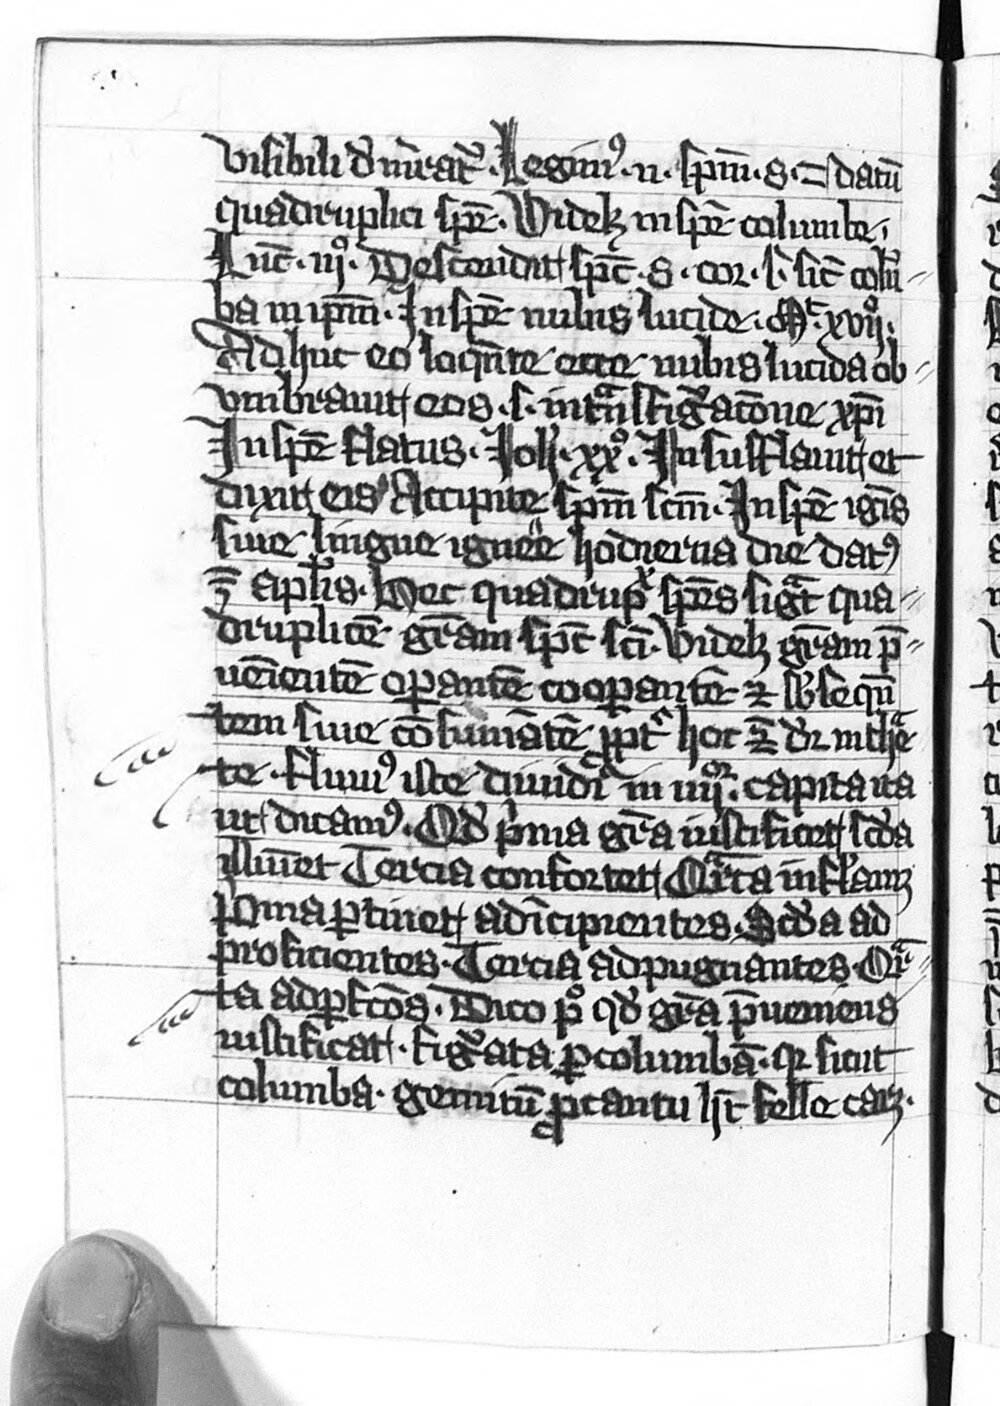 visibili dn̄r̄at᷑. Legim⁹ .n. sp̄m .s. ee datū
quadruplici sp̄e. Videlꝫ in sp̄e columbe.
Luc̄. iijº. Descendit sp̄c̄ .s. cor. s. sic̄ colū
ba in ip̄m. In sp̄e nubis lucide. Mᵗ. xvijº.
Adhuc eo loqn̄te ecce nubis lucida ob
vmbrauit eos .s. in tͣnsfigᷓac̄one xp̄i
In sp̄e flatus. Joh̄. xxº. Insufflauit et
dixit eis Accipite sp̄m sc̄m. In sp̄e ignis
siue lingue ignee hodierna die dat⁹
ē ap̄lis. Hec quadrupˣ sp̄es sigᷓt qua
druplicē gr̄am sp̄c̄ sc̄i. Videlꝫ gr̄am p̄
ueniētē oꝑantē cooꝑantē ⁊ sb̾sequē
tem siue cōsummātē ꝓpt᷑ hoc dr̄
te. Fluui⁹ iste diuidit᷑ in iiijᵒʳ. capita ita
ut dicam⁹. Qd̾ pͥma gr̄a iustificet scd̾a
illuīet Tercia confortet Qͣrta inflāmꝫ
Pͥma ꝑtinet ad īcipientes. Scd̾a ad
proficientes. Tercia ad pugnantes. Qͣr
ta ad ꝑfc̄os. Dico pº qd̾ gr̄a p̄ueniens
iustificat. figᷓata ꝑ columbā. qr sicut
columba. gemitū ꝓ cantu hꝫ felle carꝫ.